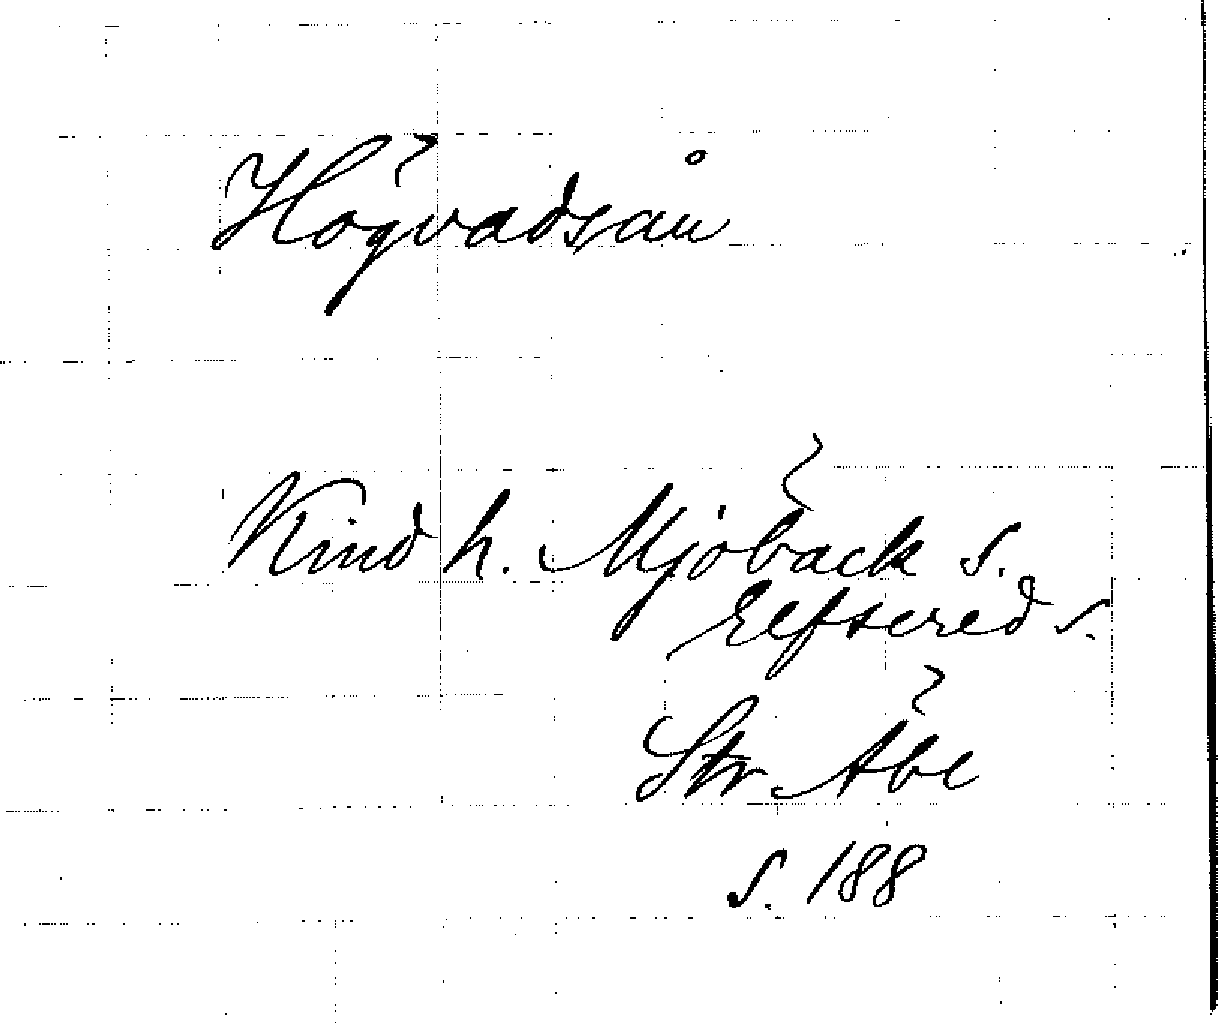 Högvadsån
Kind h. Mjöbäck s.
Elfsered s.
Str. Äbe
s. 188